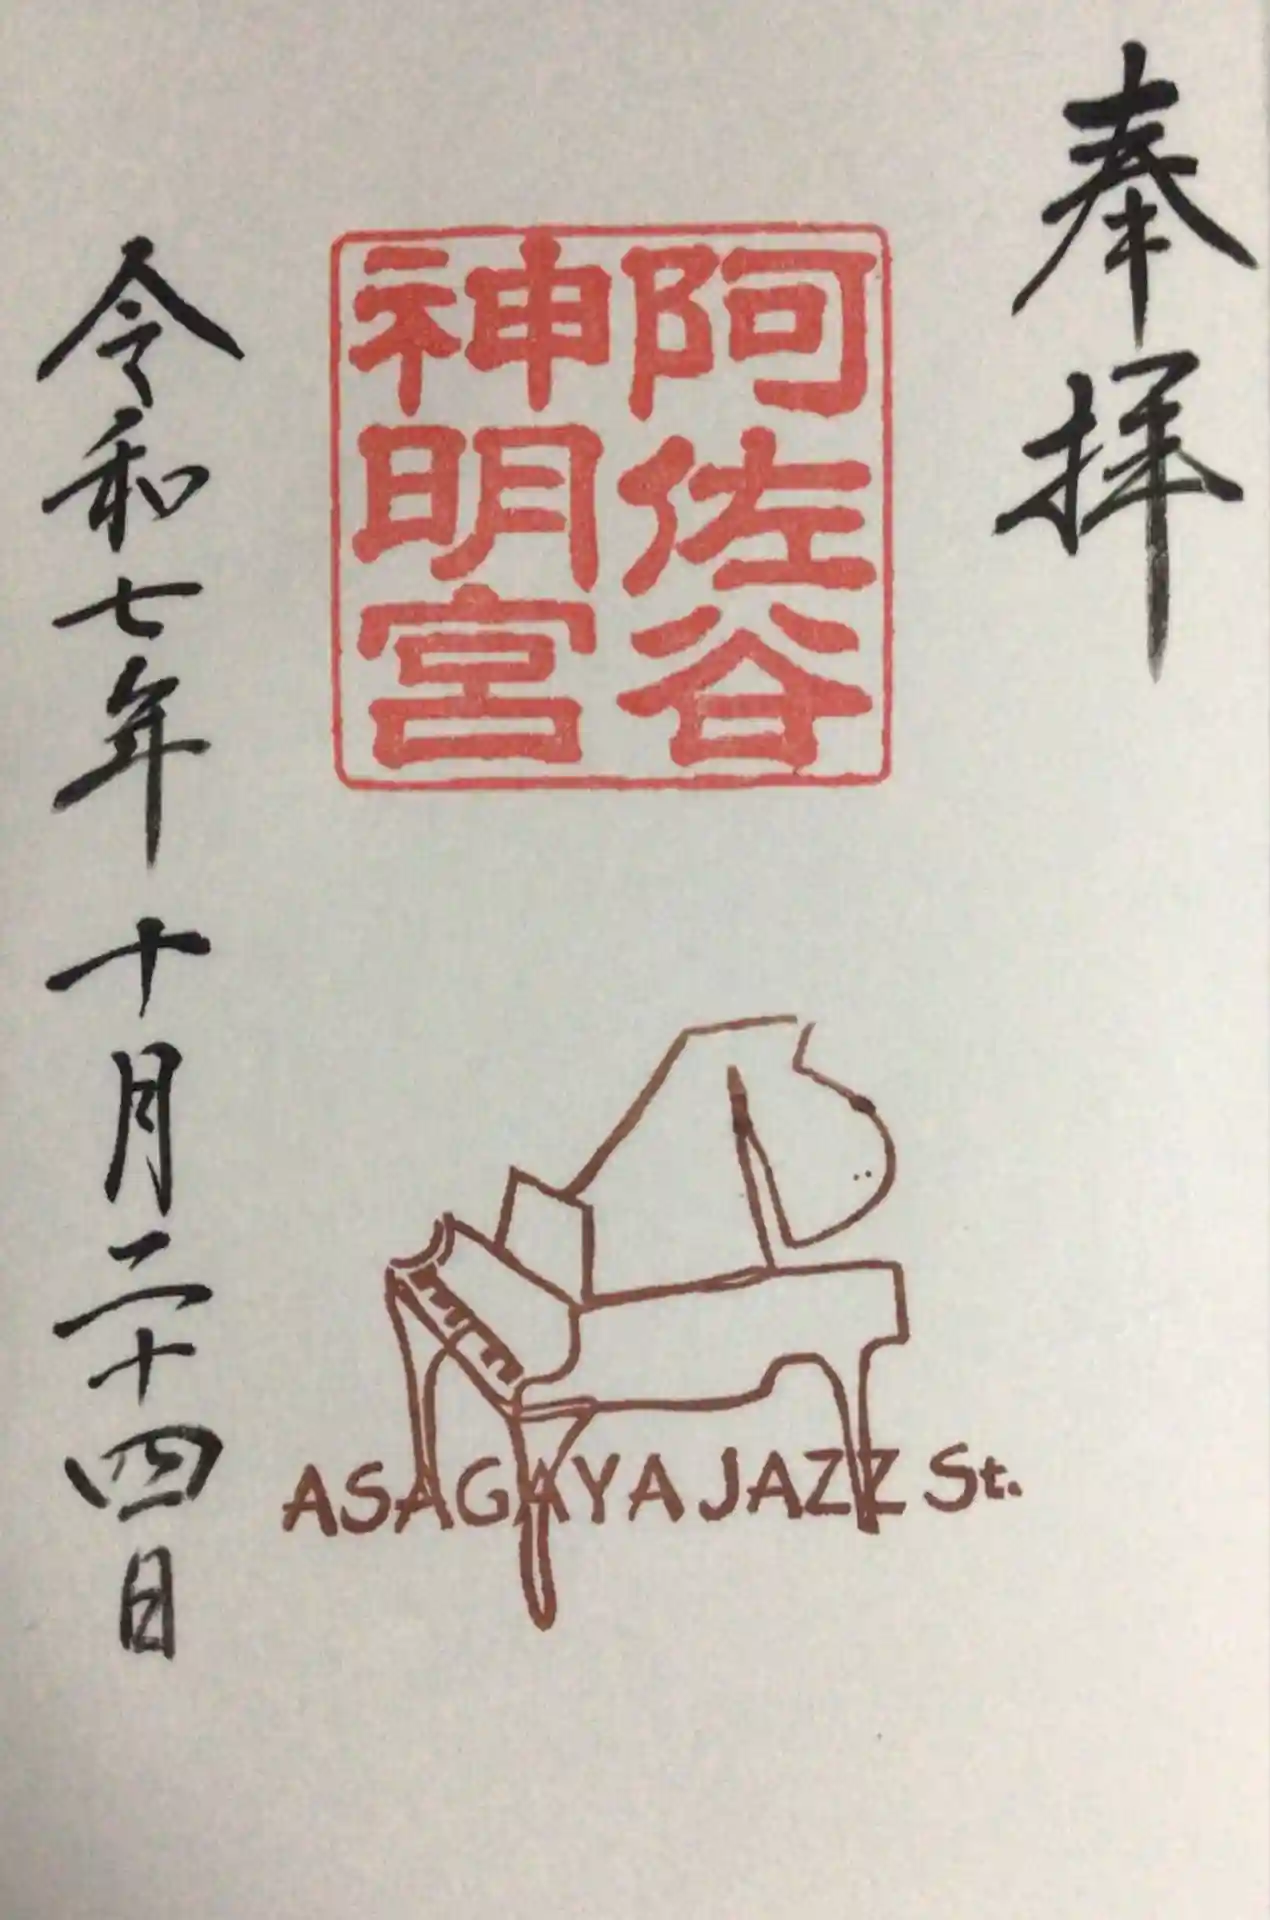 奉拝
阿佐谷
神明宮
ASAGAYA JAZZ St.
令和七年十月二十四日